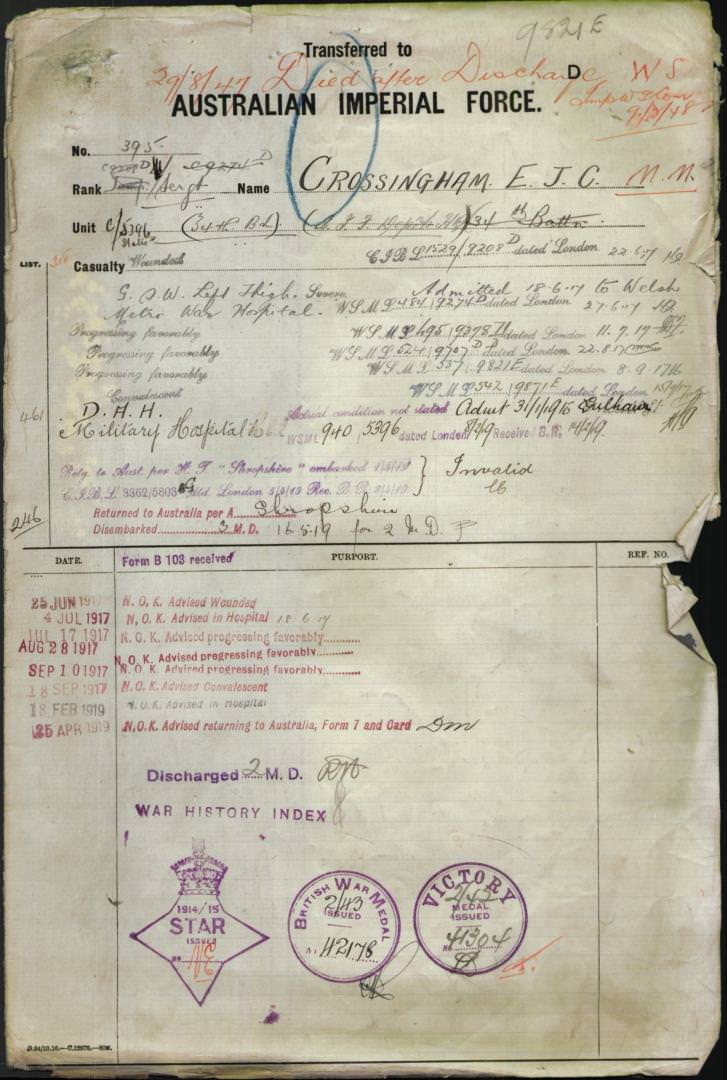 9821E
Transferred to
29/8/47 Died after Discharge W S
AUSTRALIAN IMPERIAL FORCE.
9/3/48
No. 395
C9274D
Rank Temp/Sergt Name CROSSINGHAM E. J. C. M.M.
Unit C/5396 (34th Bd.) 34th Battn.
LIST.
Casualty Wounded C.I.B.L 1529/9208D dated London 22.6.17
G.S.W. Left Thigh. Severe. Admitted 18-6-17 to Welsh
Metro War Hospital. W.S.M.L 484/9274D dated London 27.6.17
Progressing favorably W.S.M.L 495/9278 dated London 11.7.17
Progressing favorably W.S.M.L 524/9707D dated London 22.8.17
Progressing favorably W.S.M.L 537/9821E dated London 8.9.17
Convalescent W.S.M.L 542/9871E dated London
461 D.A.H. Actual condition not stated Admit 31/1/19 to
Military Hospital WSML 940/5396 dated London Received B.R. 14/2/19.
Retg. to Aust. per H.T "Shropshire" embarked 1/4/19 Invalid
C.I.B.L. 3362/5803 dtd. London 5/4/19 Rec. B.R.
246 Returned to Australia per A Shropshire
Disembarked 3 M.D. 16.5.19 for 2 M.D.
DATE. Form B 103 received PURPORT. REF. NO.
25 JUN 1917 N.O.K. Advised Wounded
4 JUL 1917 N.O.K. Advised in Hospital 18-6-17
JUL 17 1917 N.O.K. Advised progressing favorably
AUG 28 1917 N.O.K. Advised progressing favorably
SEP 10 1917 N.O.K. Advised progressing favorably
18 SEP 1917 N.O.K. Advised Convalescent
18 FEB 1919 N.O.K. Advised in Hospital
25 APR 1919 N.O.K. Advised returning to Australia, Form 7 and Card
Discharged 2 M.D.
WAR HISTORY INDEX
1914/15
STAR
ISSUED
No
BRITISH WAR MEDAL
2/43
ISSUED
42178
VICTORY
2/43
MEDAL
ISSUED
No 41304